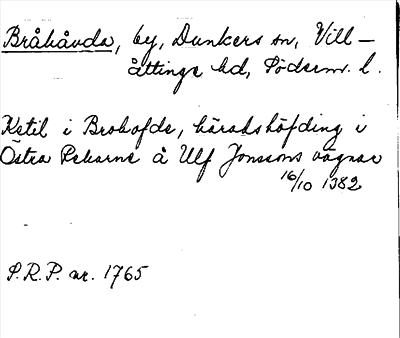 Bråhåvda, by, Dunkers sn, Vill-
åttinge hd, Söderm. l.
Ketil i Brohofde, häradshöfding i
Östra Rekarne å Ulf Jonssons vägnar
16/10 1382
S.R.P. nr. 1765